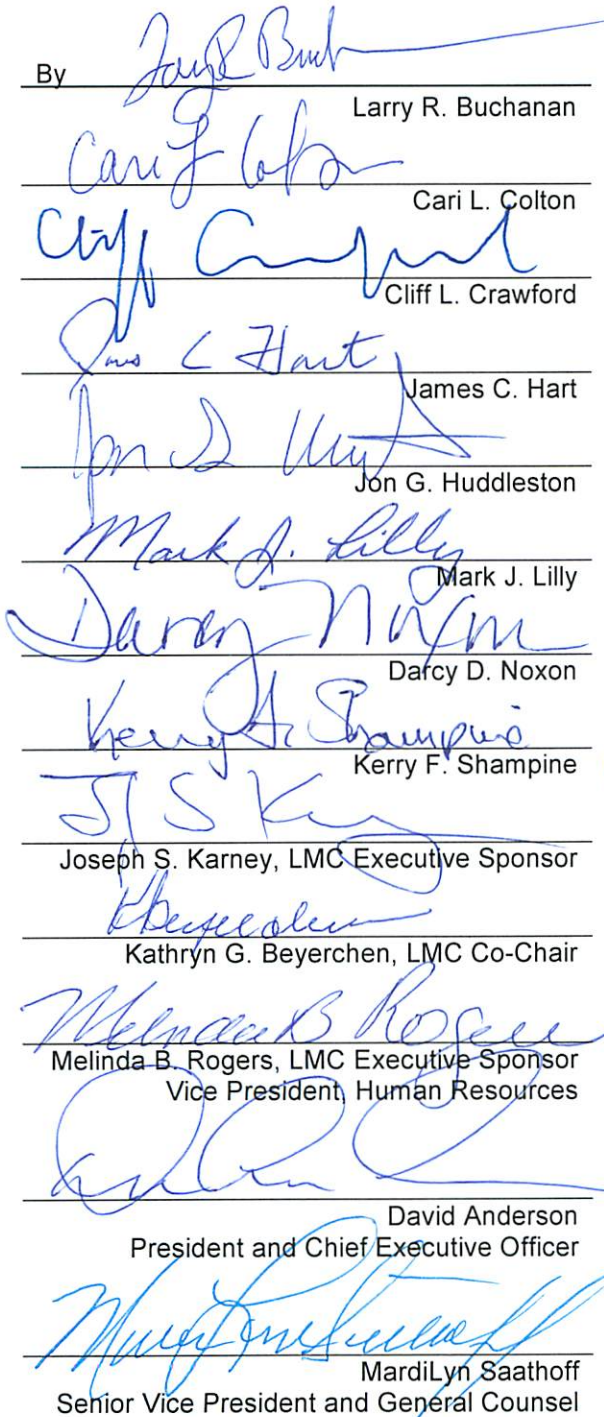 By
Larry R. Buchanan
Cari L
Cari L. Colton
Cliff Crawford
Cliff L. Crawford
C Hart
James C. Hart
Jon G
Jon G. Huddleston
Mark J. Lilly
Mark J. Lilly
Darcy Noxon
Darcy D. Noxon
Kerry F. Shampine
Kerry F. Shampine
Joseph S. Karney, LMC Executive Sponsor
Kathryn G. Beyerchen, LMC Co-Chair
Melinda B Rogers
Melinda B. Rogers, LMC Executive Sponsor
Vice President, Human Resources
David Anderson
President and Chief Executive Officer
MardiLyn Saathoff
Senior Vice President and General Counsel